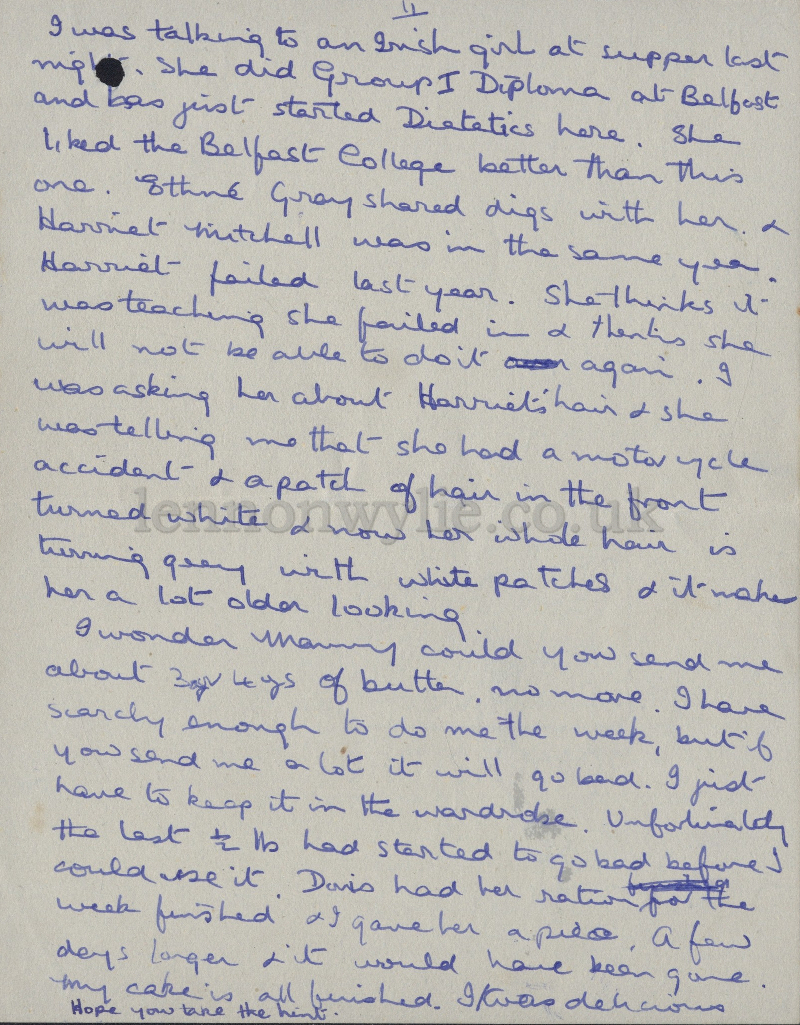 11
I was talking to an Irish girl at supper last
night. She did Group I Diploma at Belfast
and has just started Dietetics here. She
liked the Belfast College better than this
one. Ethné Gray shared digs with her. &
Harriet Mitchell was in the same year.
Harriet failed last year. She thinks it
was teaching she failed in & thinks she
will not be able to do it again. I
was asking her about Harriet's hair & she
was telling me that she had a motor cycle
accident & a patch of hair in the front
turned white & now her whole hair is
turning grey with white patches & it makes
her a lot older looking
I wonder Mammy could you send me
about 3 or 4 ozs of butter, no more. I have
scarcly enough to do me the week, but if
you send me a lot it will go bad. I just
have to keep it in the wardrobe. Unfortunately
the last ½ lb had started to go bad before I
could use it. Doris had her ration for the
week finished & I gave her a piece. A few
days longer & it would have been gone.
My cake is all finished. It was delicious
Hope you take the hint.
lennonwylie.co.uk